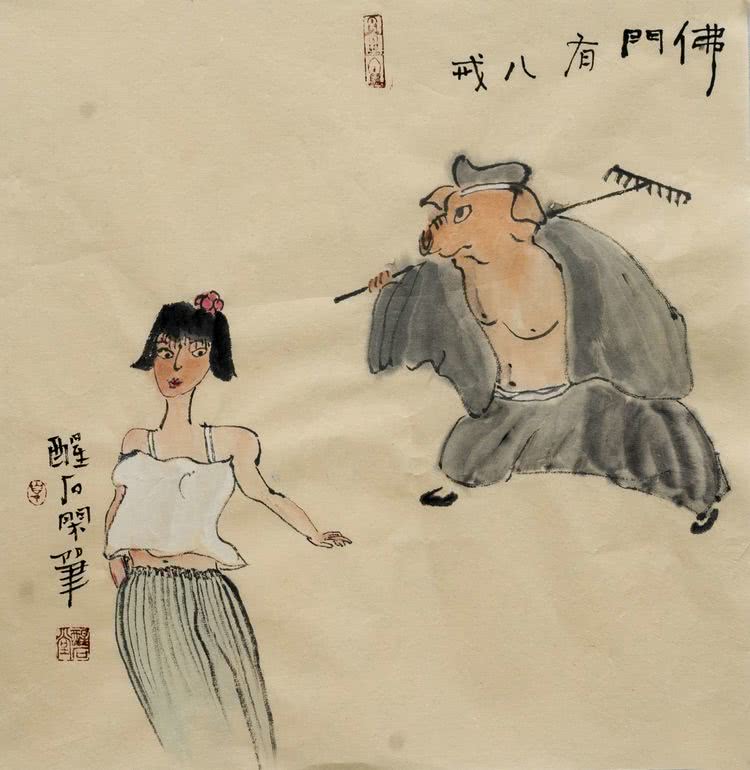 佛門有八戒
醒石閑筆